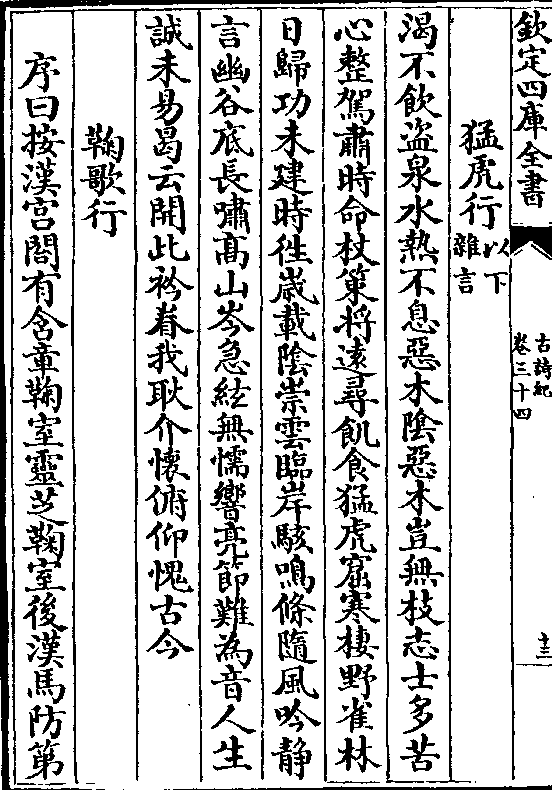 欽定四庫全書
古詩紀
卷三十四
十三
猛虎行以下雜言
渴不飲盜泉水熱不息惡木陰惡木豈無枝志士多苦
心整駕肅時命杖策將遠尋飢食猛虎窟寒棲野雀林
日歸功未建時徃嵗載陰崇雲臨岸駭鳴條隨風吟静
言幽谷底長嘯髙山岑急絃無懦響亮節難為音人生
誠未易曷云開此衿眷我耿介懷俯仰愧古今
鞠歌行
序曰按漢宫閤有含章鞠室靈芝鞠室後漢馬防第